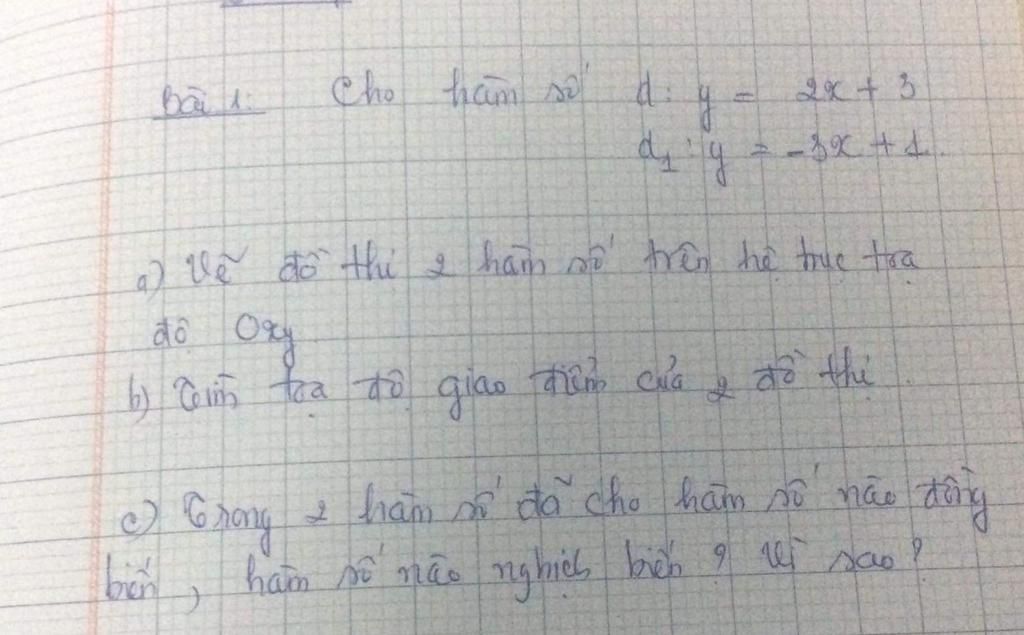 Bài 1: Cho hàm số d: y = 2x + 3
d₁: y = -3x + 1.
a) Vẽ đồ thị 2 hàm số trên hệ trục tọa
độ Oxy
b) Tìm tọa độ giao điểm của 2 đồ thị.
c) Trong 2 hàm số đã cho hàm số nào đồng
biến, hàm số nào nghịch biến? Vì sao?